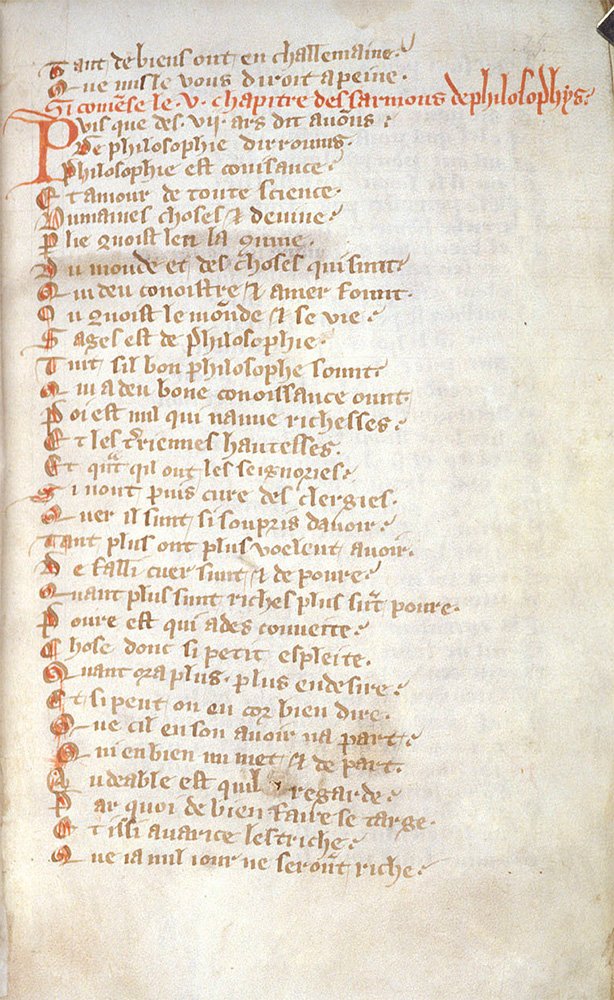 Tant de biens ont en challemaine
Que nus le vous diroit a peine.
Si comēse le .v. chapitre des sarmons de philosophys
Puis que des .vij. ars dit auōns
De philosophie dirroums.
Philosophie est conisance
Et amour de toute science.
Humaines choses & deuine
Du monde et des choses qui sunt
Qui deu conoistre & amer sount.
Qu quoist le mōde & se vie
Sages est de philosophie
Tuit sil bon philosophe sount
Qui a deu bone conoissance ount
Poi est nul qui naime richesses
Et les t̄riennes hautesses.
Et qūt qil ont les seignories
Si nont puis cure des clergies.
Quer il sunt si soupris dauoir
Tant plus ont plus voelent auoir.
De falli cuer sunt & de poure
Quant plus sunt riches plus sūt poure.
Poure est qui ades conueite
Chose dont si petit espleite.
Quant ora plus. plus en desire
Et si peut on en cor bien dire.
Que cil en son auoir na part
Qui en bien nu met & de part.
quil regarde
Par quoi de bien faire se targe.
Et issi auarice lestriche
Que ia nul iour ne serōt riche